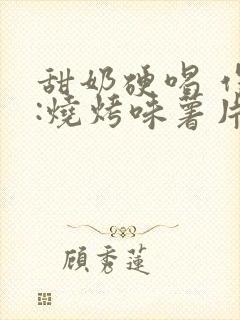 甜奶硬唱
:燒烤味薯片
顧秀蓮